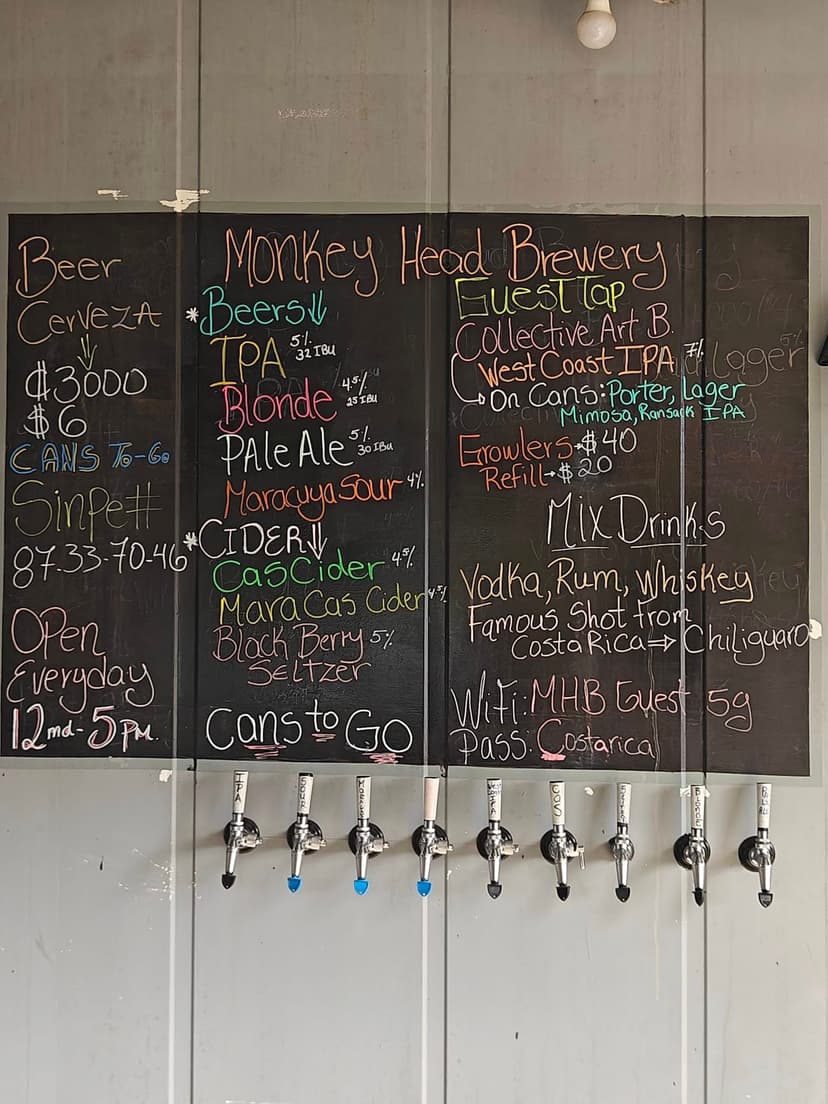 Monkey Head Brewery
Beer
Cerveza
₡3000
$6
CANS To-Go
Sinpe#
87-33-70-46
Open
Everyday
12md-5pm.
*Beers
IPA 5% 32 IBU
Blonde 4.5% 25 IBU
PAle Ale 5% 30 IBU
Maracuya Sour 4%
*CIDER
Cas Cider 4.5%
MaraCas Cider 4.5%
Black Berry 5%
Seltzer
Cans to GO
Guest Tap
Collective Art B.
West Coast IPA 7%
On Cans: Porter, Lager
Mimosa, Ransack IPA
Growlers→$40
Refill→$20
Mix Drinks
Vodka, Rum, Whiskey
Famous Shot from
Costa Rica⇒Chiliguaro
WiFi: MHB Guest 5g
Pass: Costarica
IPA
SOUR
West Coast IPA
COS
BLONDE